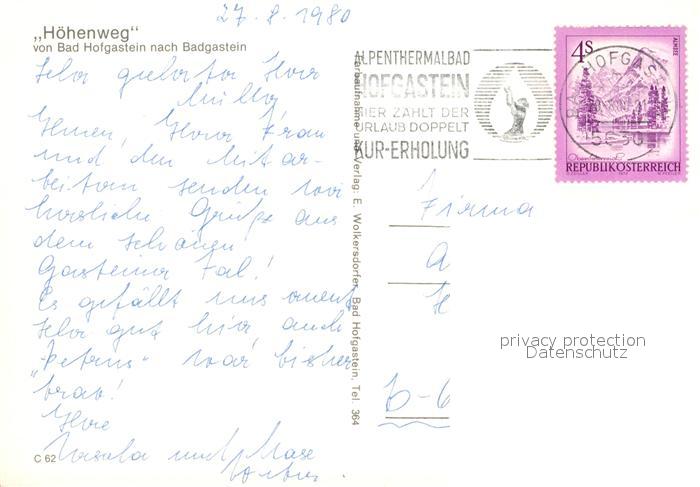 27.8.1980
„Höhenweg“
von Bad Hofgastein nach Badgastein
Sehr geehrter Herr
Müller
Ihnen, Ihrer Frau
und den Mitar-
beitern senden wir
herzliche Grüße aus
dem schönen
Gasteiner Tal!
Es gefällt uns
sehr gut hier, auch
„Petrus“ war bisher
brav!
Ihre
und
C 62
Farbaufnahme und Verlag: E. Wolkersdorfer, Bad Hofgastein, Tel. 364
ALPENTHERMALBAD
HOFGASTEIN
HIER ZÄHLT DER
URLAUB DOPPELT
KUR-ERHOLUNG
BAD HOFGAST
5630
ALMSEE
4S
Oberösterreich
REPUBLIK ÖSTERREICH
Firma
A
H
D-6
privacy protection
Datenschutz